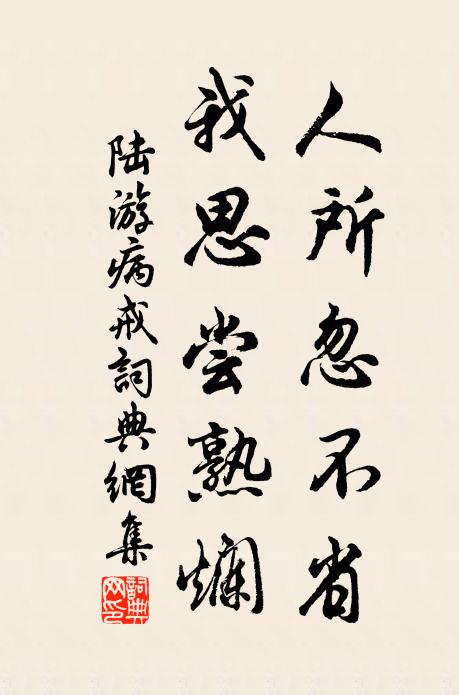 人所忽不省
我思尝熟爛
陆游病戒詞典網集
詞典网印